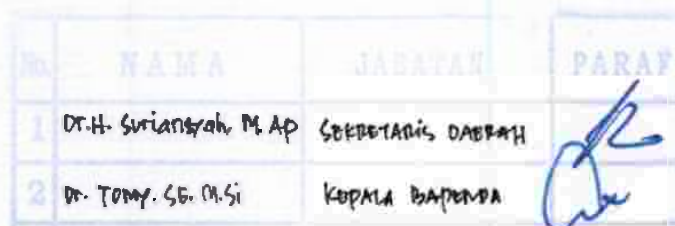 No. NAMA JABATAN PARAF
1 Dr. H. Suriansyah, M. AP SEKRETARIS DAERAH
2 Dr. TOMY. SE. M.Si KEPALA BAPENDA